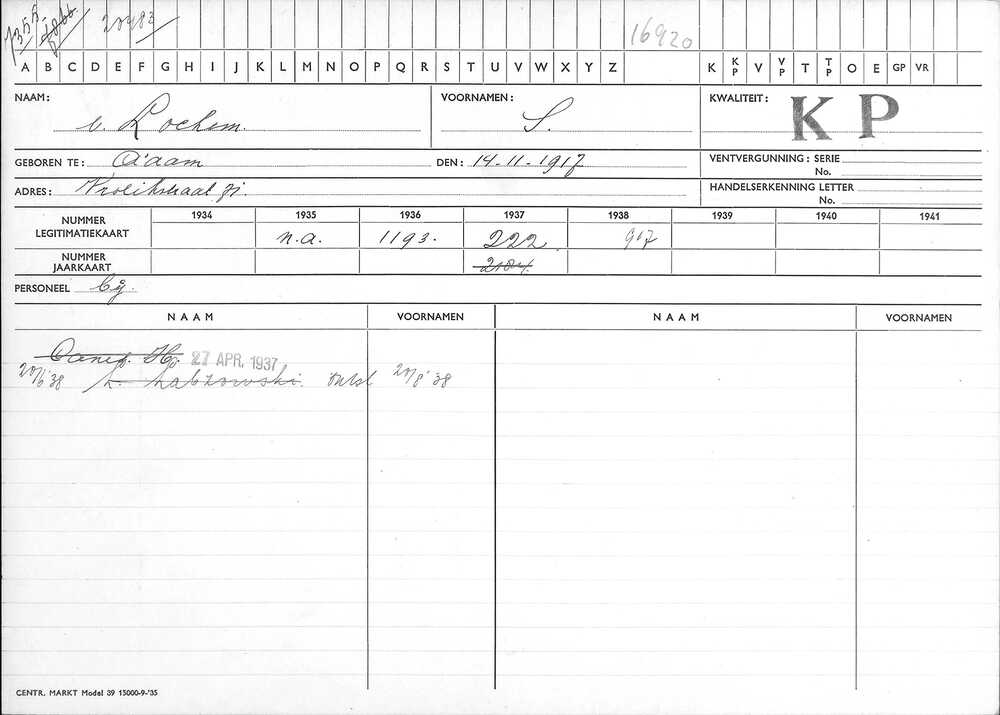 7355 20483 16920
A B C D E F G H I J K L M N O P Q R S T U V W X Y Z K KP V VP T TP O E GP VR
NAAM: v. Lochem. VOORNAMEN: S. KWALITEIT: K P
GEBOREN TE: A'dam DEN: 14-11-1917 VENTVERGUNNING: SERIE
No.
ADRES: Vrolikstraat 71 HANDELSERKENNING LETTER
No.
1934 1935 1936 1937 1938 1939 1940 1941
NUMMER LEGITIMATIEKAART n.a. 1193. 222 917
NUMMER JAARKAART 2184
PERSONEEL bij
NAAM VOORNAMEN NAAM VOORNAMEN
27 APR. 1937
20/6 '38 L. Labzowski. Ontsl 20/8 '38
CENTR. MARKT Model 39 15000-9-'35